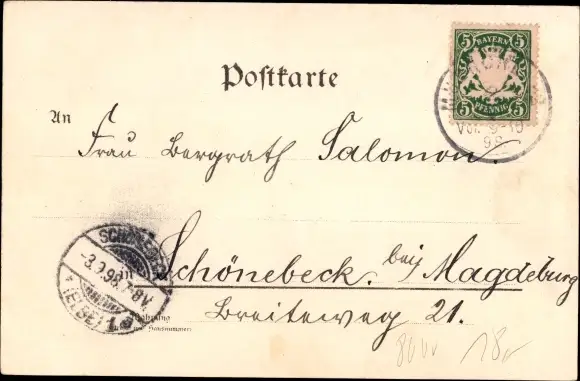 BAYERN
5 5
5 5
PFENNIG
Postkarte
Vor. 9-10
98
An
Frau Bergrath Salomon.
3.9.98. 7-8V
in
Schönebeck. bei Magdeburg
(ELBE) 1
Breiteweg 21.
18,-